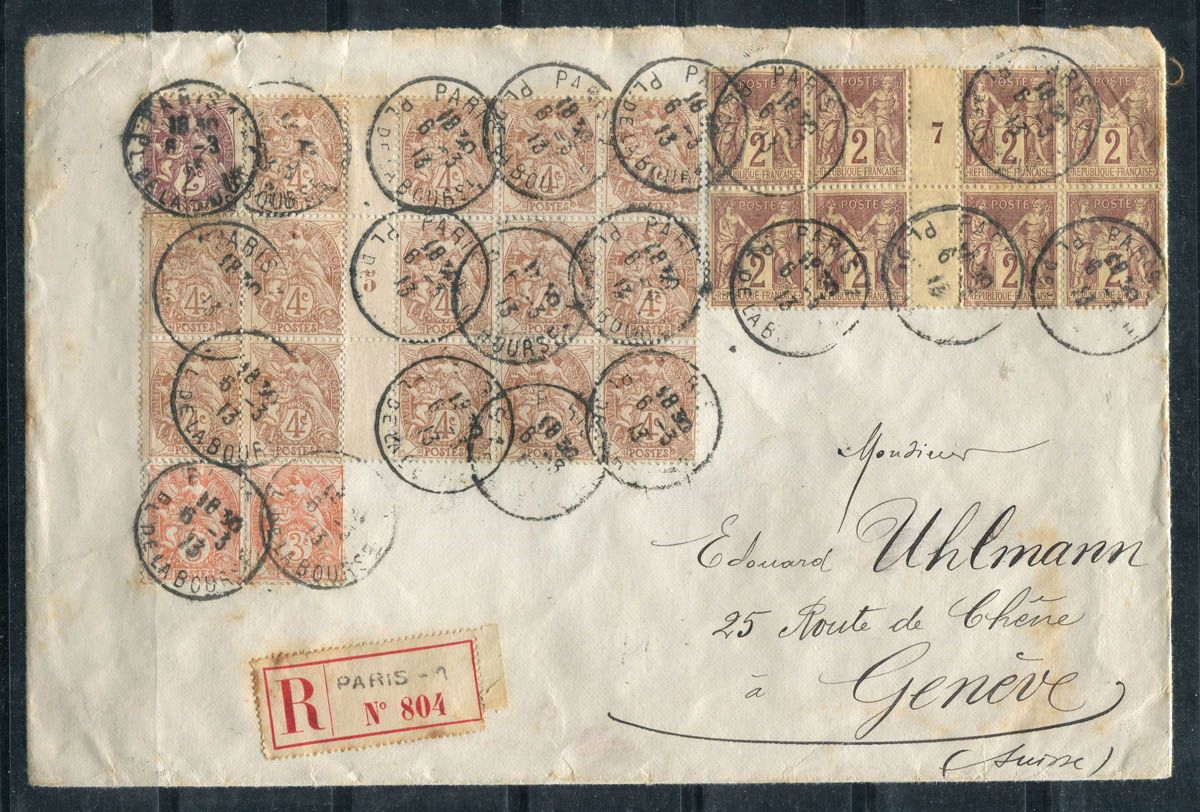 PARIS
18 30
6 -3
13
PL DE LA BOURSE
POSTE
2
REPUBLIQUE FRANÇAISE
7
4c
POSTES
5
3c
Monsieur
Edouard Uhlmann
25 Route de Chêne
à Genève
(Suisse)
R
PARIS - 1
N° 804